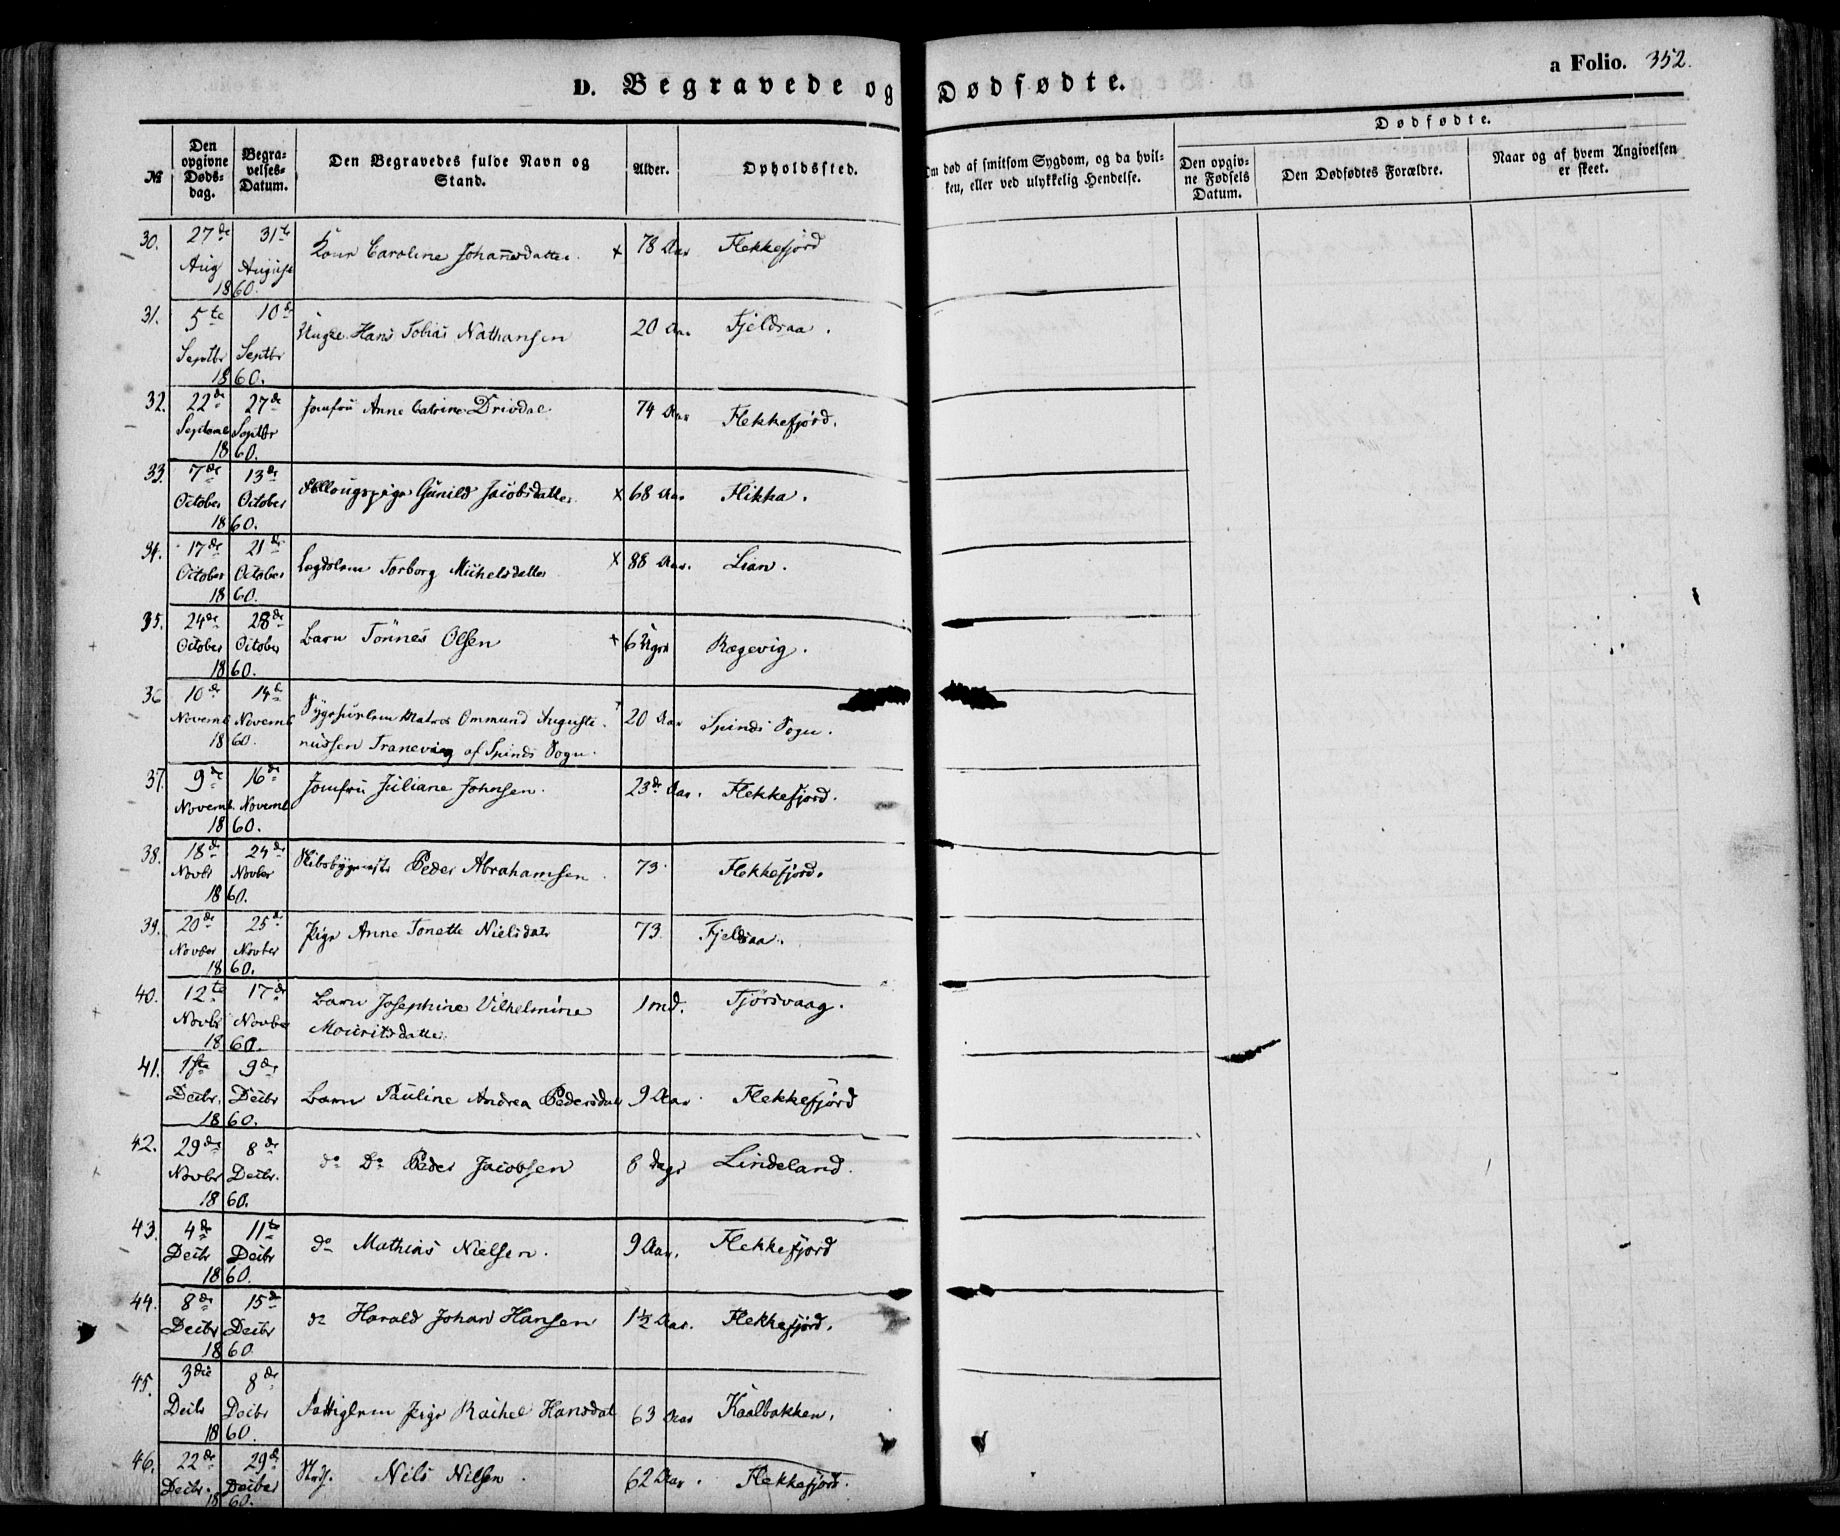 D. Begravede og Dødfødte.
a Folio. 352.
№
Den opgivne Dødsdag.
Begravelses-Datum.
Den Begravedes fulde Navn og Stand.
Alder.
Opholdssted.
Om død af smitsom Sygdom, og da hvilken, eller ved ulykkelig Hendelse.
Dødfødte.
Den opgivne Fødsels Datum.
Den Dødfødtes Forældre.
Naar og af hvem Angivelsen er skeet.
30. 27de Aug 31te August 1860. Kone Caroline Johannesdatter. + 78 Aar Flekkefjord
31. 5te Septbr 10de Septbr 1860. Ungk. Hans Tobias Nathansen 20 Aar Fjeldsaa.
32. 22de Septemb 27de Septbr 1860. Jomfru Anne Catrine Drivdal 74 Aar Flekkefjord.
33. 7de October 13de October 1860. Gunild Jacobsdatter x 68 Aar Flikka.
34. 17de October 21de October 1860. Lægdslem Torborg Michelsdatter x 88 Aar. Lian.
35. 24de October 28de October 1860. Barn Tönnes Olsen + 6 Uger Rægevig.
36 10de Novemb 14de Novemb 1860. Matros Ommund Augusti-
nussen Tranevaag af Spinds Sogn. + 20 Aar Spinds Sogn.
37. 9de Novemb. 16de Novemb 1860. Jomfru Juliane Johnsen. 23de Aar. Flekkefjord.
38. 18de Novbr 24de Novber 1860. Skibsbygmester Peder Abrahamsen. 73. Flekkefjord.
39. 20de Novber 25de Novber 1860. Pige Anne Tonette Nielsdatr 73. Fjeldsaa.
40. 12te Novbr 17de Novber 1860. Barn Josephine Vilhelmine
Mouritsdatter. 1 md. Fjörsvaag.
41. 1ste Decbr. 9de Decbr 1860. Barn Pauline Andrea Pedersdatr 9 Aar. Flekkefjörd
42. 29de Novbr 8de Decbr. 1860. do Do Peder Jacobsen 8 dage Lindeland.
43. 4de Decbr 11te Decbr 1860. do Mathias Nielsen. 9 Aar. Flekkefjord
44. 8de Decbr 15de Decbr 1860 do Harald Johan Hansen 1½ Aar. Flekkefjörd.
45. 3die Decbr 8de Decbr 1860. Fattiglem Pige Rachel Hansdat 63 Aar Kaalbakken.
46. 22de Decbr. 29de Decber 1860. Nils Nilsen. 62 Aar. Flekkefjord.